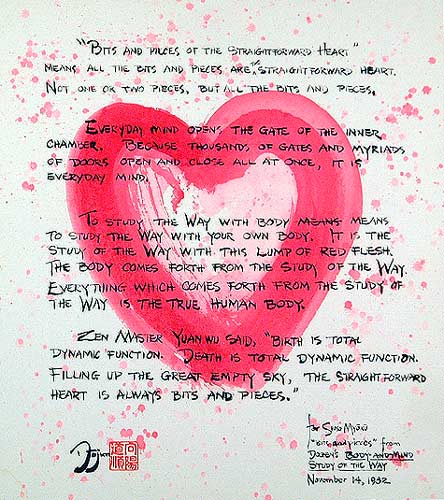 "Bits and pieces of the straightforward heart"
means all the bits and pieces are the straightforward heart.
Not one or two pieces, but all the bits and pieces.
Everyday mind opens the gate of the inner
chamber. Because thousands of gates and myriads
of doors open and close all at once, it is
everyday mind.
To study the Way with body means means
to study the Way with your own body. It is the
study of the Way with this lump of red flesh.
The body comes forth from the study of the Way.
Everything which comes forth from the study of
the Way is the true human body.
Zen Master Yuanwu said, "Birth is total
dynamic function. Death is total dynamic function.
Filling up the great empty sky, the straightforward
heart is always bits and pieces."
for
"bits and pieces" from
Dogen's Body-and-Mind
Study of the Way
November 14, 1992